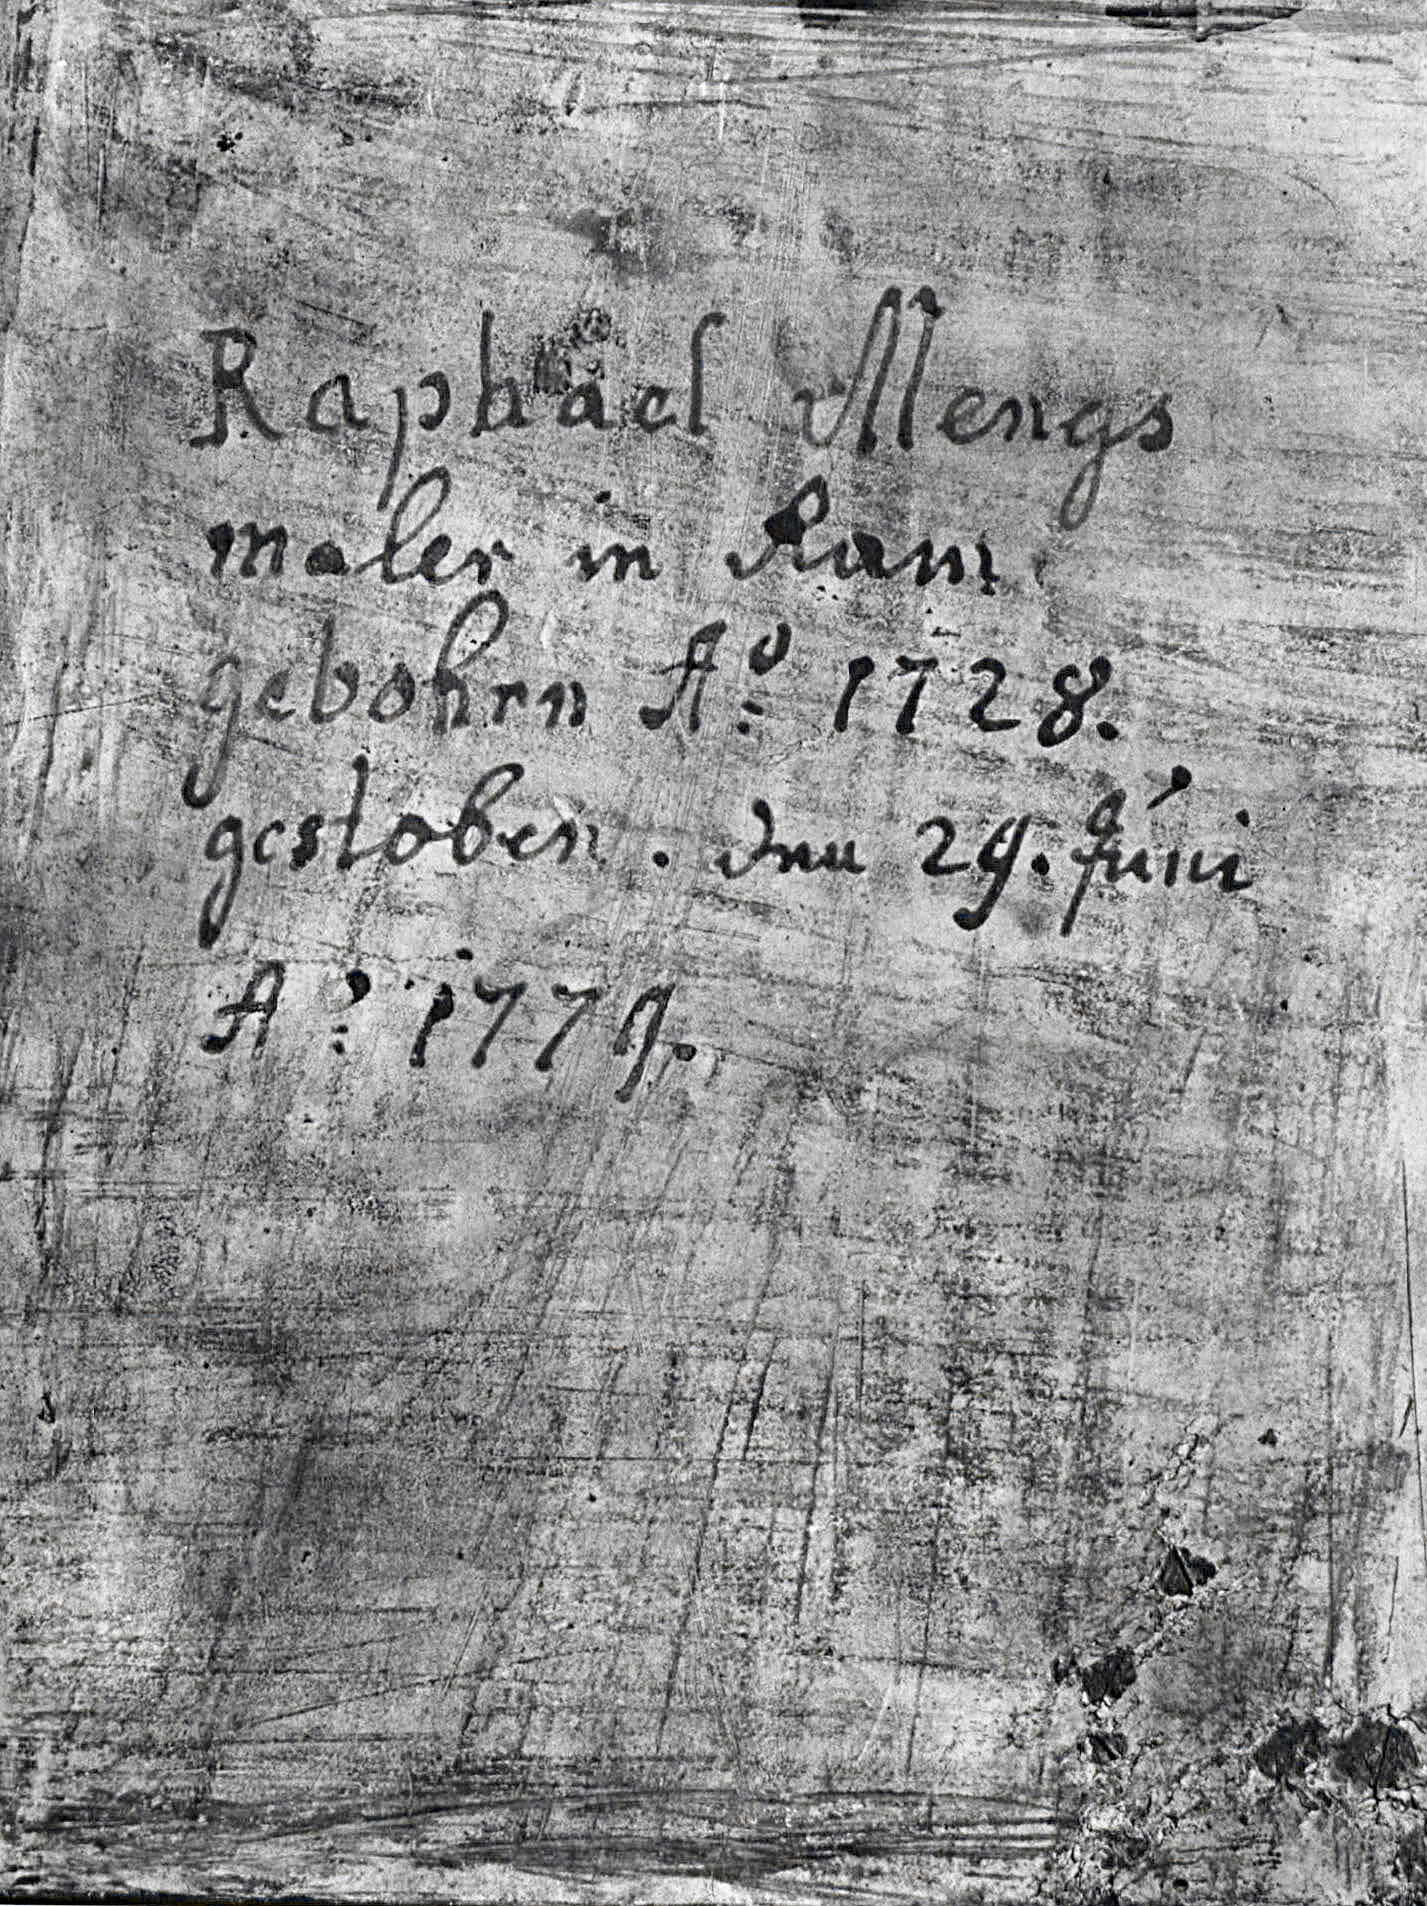 Raphael Mengs
maler in Ram
gebohrn Aº: 1728.
gestoben . den 29. Juni
Aº: 1779.